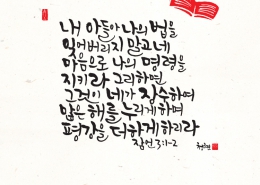 내 아들아 나의 법을
잊어버리지 말고 네
마음으로 나의 명령을
지키라 그리하면
그것이 네가 장수하여
많은 해를 누리게 하며
평강을 더하게 하리라
잠언 3:1-2